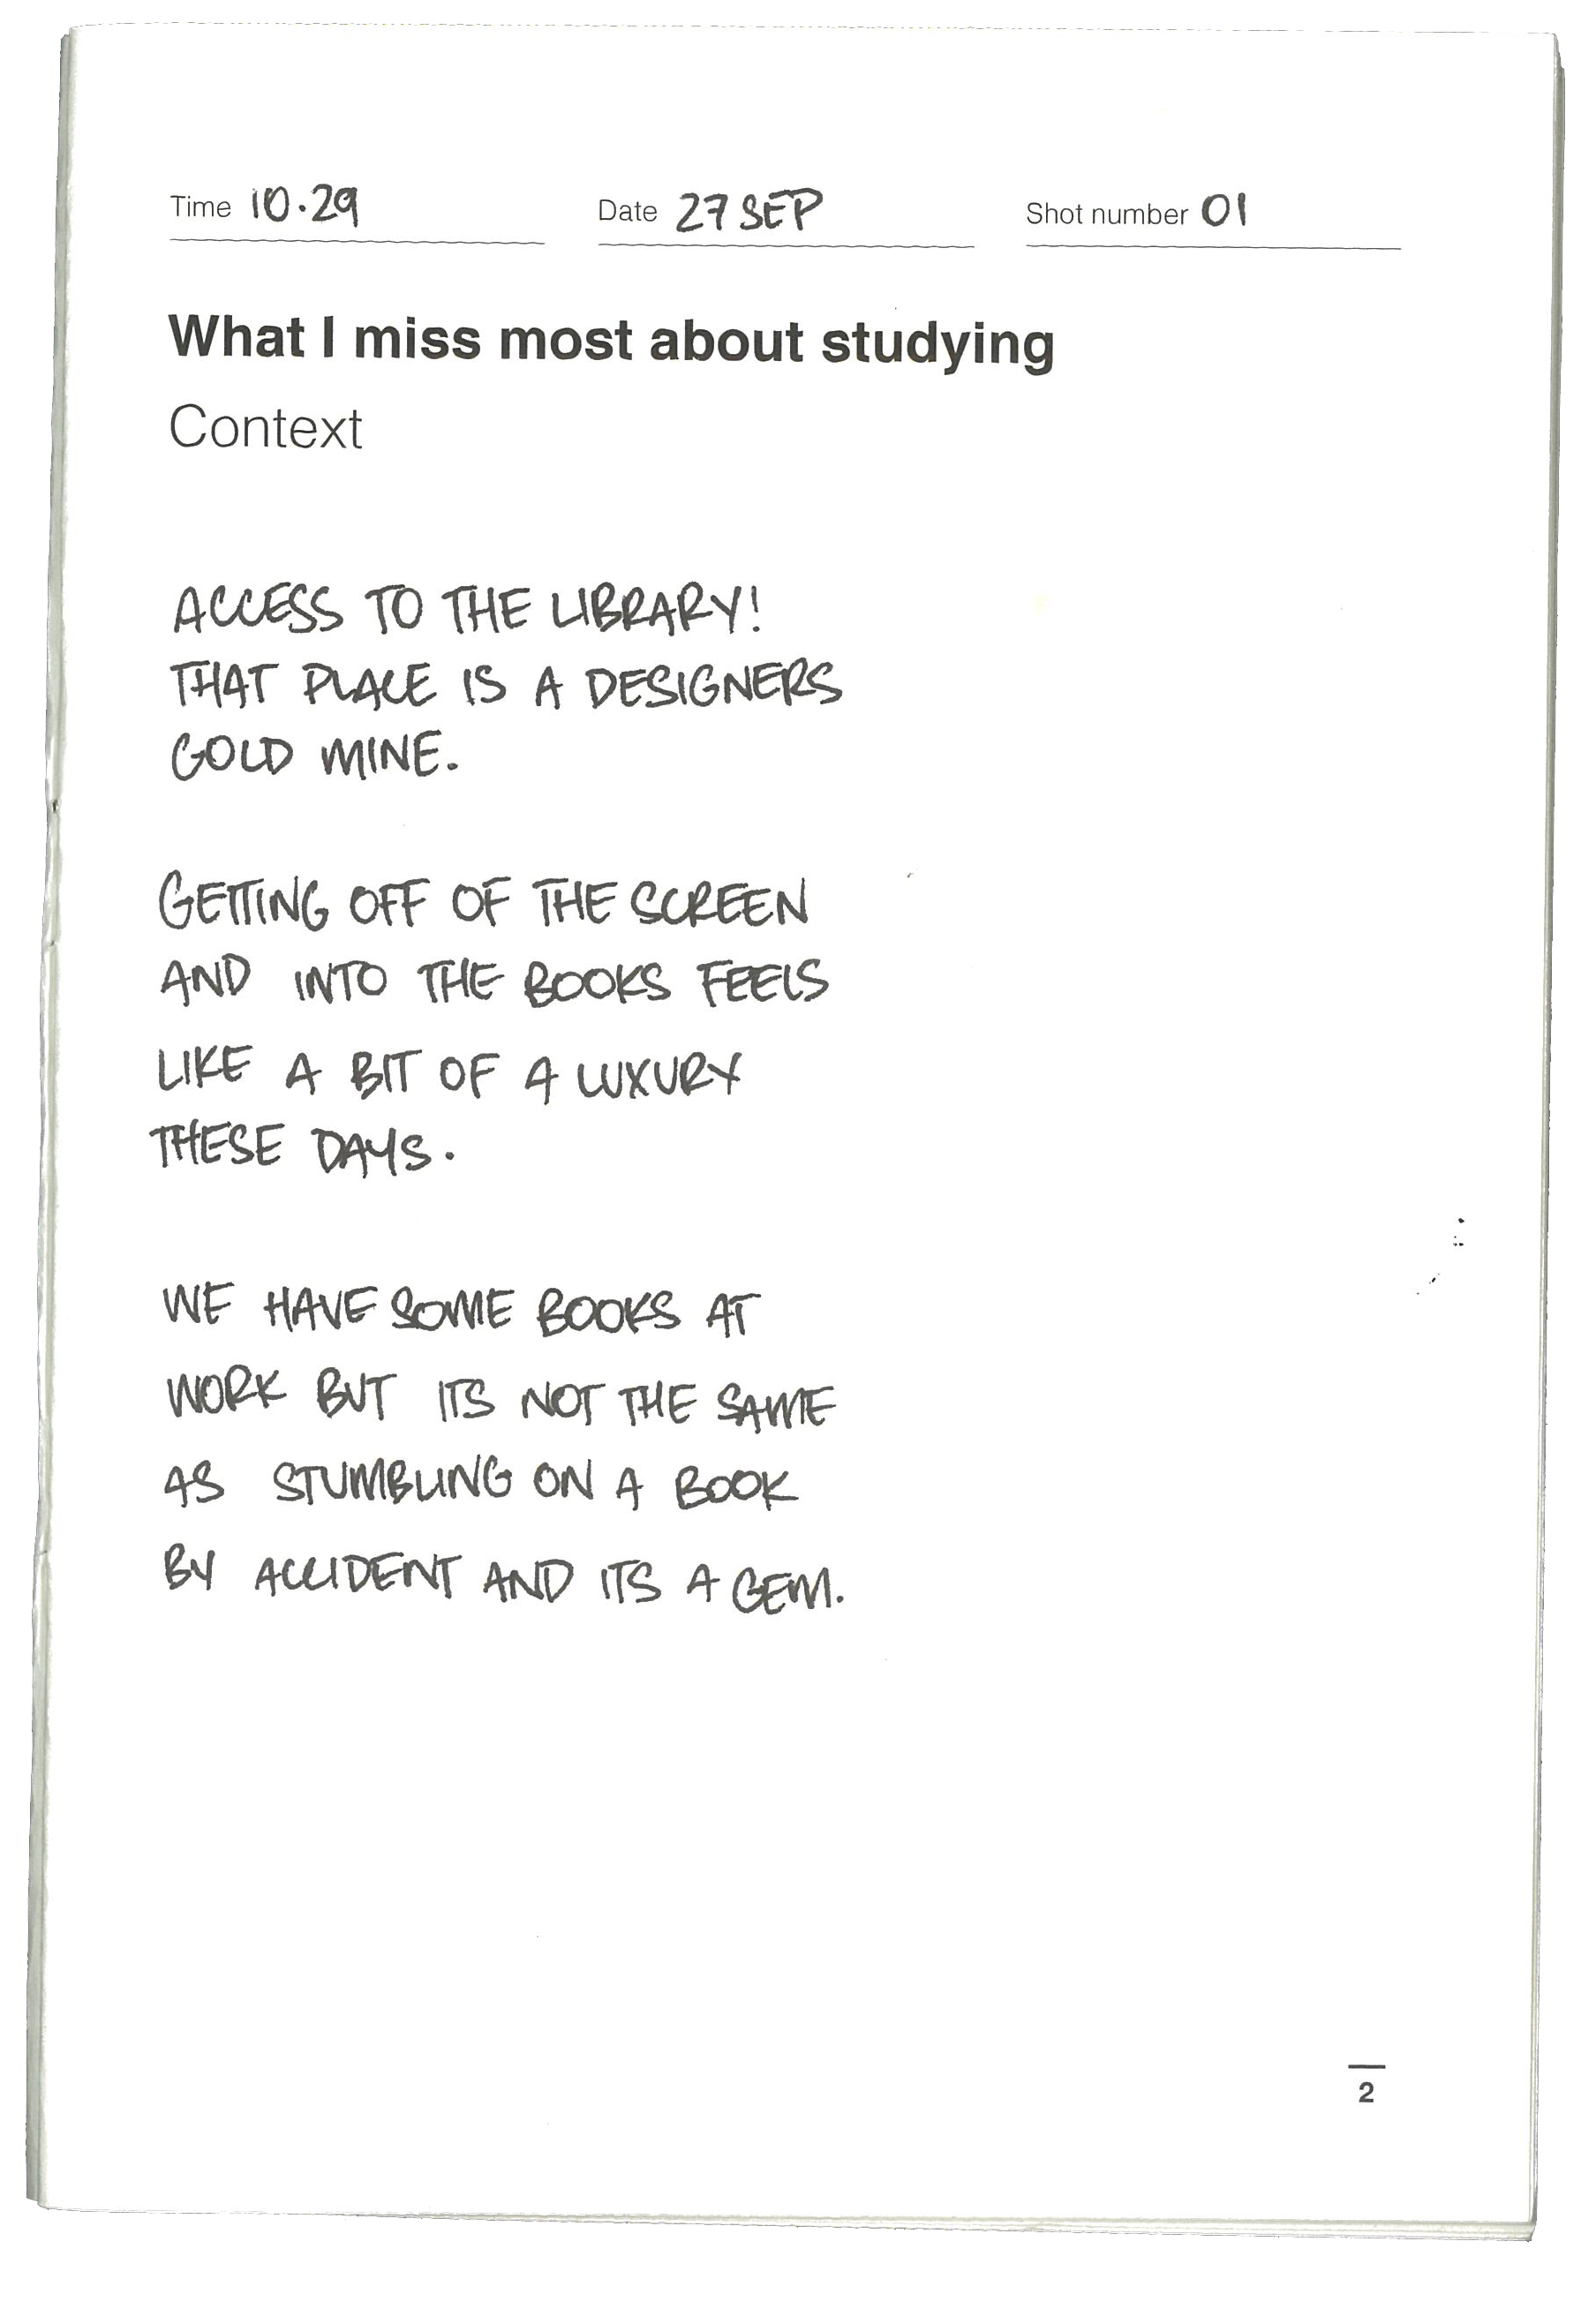 Time 10.29 Date 27 SEP Shot number 01
What I miss most about studying
Context
ACCESS TO THE LIBRARY!
THAT PLACE IS A DESIGNERS
GOLD MINE.
GETTING OFF OF THE SCREEN
AND INTO THE BOOKS FEELS
LIKE A BIT OF A LUXURY
THESE DAYS.
WE HAVE SOME BOOKS AT
WORK BUT ITS NOT THE SAME
AS STUMBLING ON A BOOK
BY ACCIDENT AND ITS A GEM.
2